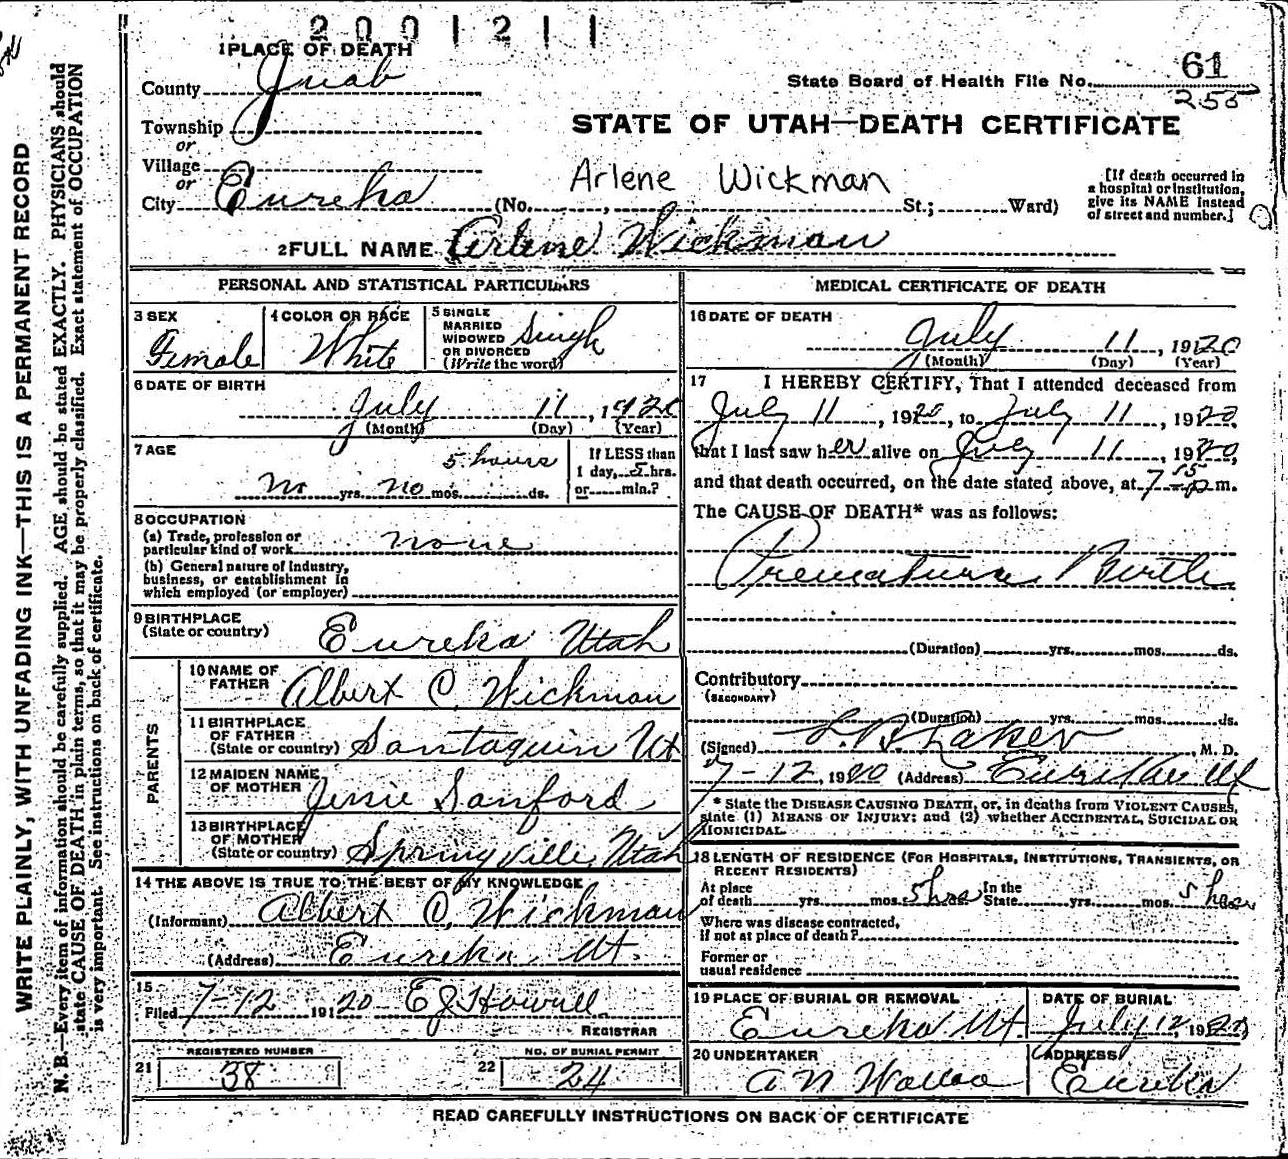 2001211
1 PLACE OF DEATH
County Juab
State Board of Health File No. 61
255
Township
or
Village
or
City Eureka (No. , St.; Ward)
STATE OF UTAH—DEATH CERTIFICATE
Arlene Wickman
[If death occurred in
a hospital or institution,
give its NAME instead
of street and number.]
2 FULL NAME Arlene Wickman
PERSONAL AND STATISTICAL PARTICULARS
3 SEX
Female
4 COLOR OR RACE
White
5 SINGLE
MARRIED
WIDOWED
OR DIVORCED
(Write the word)
Single
6 DATE OF BIRTH
July 11, 1920
(Month) (Day) (Year)
7 AGE
5 hours
no yrs. no mos. ds.
If LESS than
1 day, 5 hrs.
or min.?
8 OCCUPATION
(a) Trade, profession or
particular kind of work none
(b) General nature of industry,
business, or establishment in
which employed (or employer)
9 BIRTHPLACE
(State or country) Eureka Utah
PARENTS
10 NAME OF
FATHER Albert C. Wickman
11 BIRTHPLACE
OF FATHER
(State or country) Santaquin Ut
12 MAIDEN NAME
OF MOTHER Jessie Sanford
13 BIRTHPLACE
OF MOTHER
(State or country) Springville, Utah
14 THE ABOVE IS TRUE TO THE BEST OF MY KNOWLEDGE
(Informant) Albert C. Wickman
(Address) Eureka, Ut.
15
Filed 7-12 1920 E J Howell
REGISTRAR
21 REGISTERED NUMBER
38
22 NO. OF BURIAL PERMIT
24
MEDICAL CERTIFICATE OF DEATH
16 DATE OF DEATH
July 11, 1920
(Month) (Day) (Year)
17 I HEREBY CERTIFY, That I attended deceased from
July 11, 1920, to July 11, 1920
that I last saw her alive on July 11, 1920,
and that death occurred, on the date stated above, at 7 15 p m.
The CAUSE OF DEATH* was as follows:
Premature Birth
(Duration) yrs. mos. ds.
Contributory
(SECONDARY)
(Duration) yrs. mos. ds.
(Signed) , M. D.
7-12, 1920 (Address) Eureka Ut
* State the DISEASE CAUSING DEATH, or, in deaths from VIOLENT CAUSES,
state (1) MEANS OF INJURY; and (2) whether ACCIDENTAL, SUICIDAL OR
HOMICIDAL.
18 LENGTH OF RESIDENCE (FOR HOSPITALS, INSTITUTIONS, TRANSIENTS, OR
RECENT RESIDENTS)
At place
of death yrs. mos. 5 hrs In the
State yrs. mos. 5 hours
Where was disease contracted,
if not at place of death?
Former or
usual residence
19 PLACE OF BURIAL OR REMOVAL
Eureka Ut.
DATE OF BURIAL
July 12, 1920
20 UNDERTAKER
A N
ADDRESS
Eureka
READ CAREFULLY INSTRUCTIONS ON BACK OF CERTIFICATE
WRITE PLAINLY, WITH UNFADING INK—THIS IS A PERMANENT RECORD
N. B.—Every item of information should be carefully supplied. AGE should be stated EXACTLY. PHYSICIANS should
state CAUSE OF DEATH in plain terms, so that it may be properly classified. Exact statement of OCCUPATION
is very important. See instructions on back of certificate.